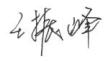 王振峰